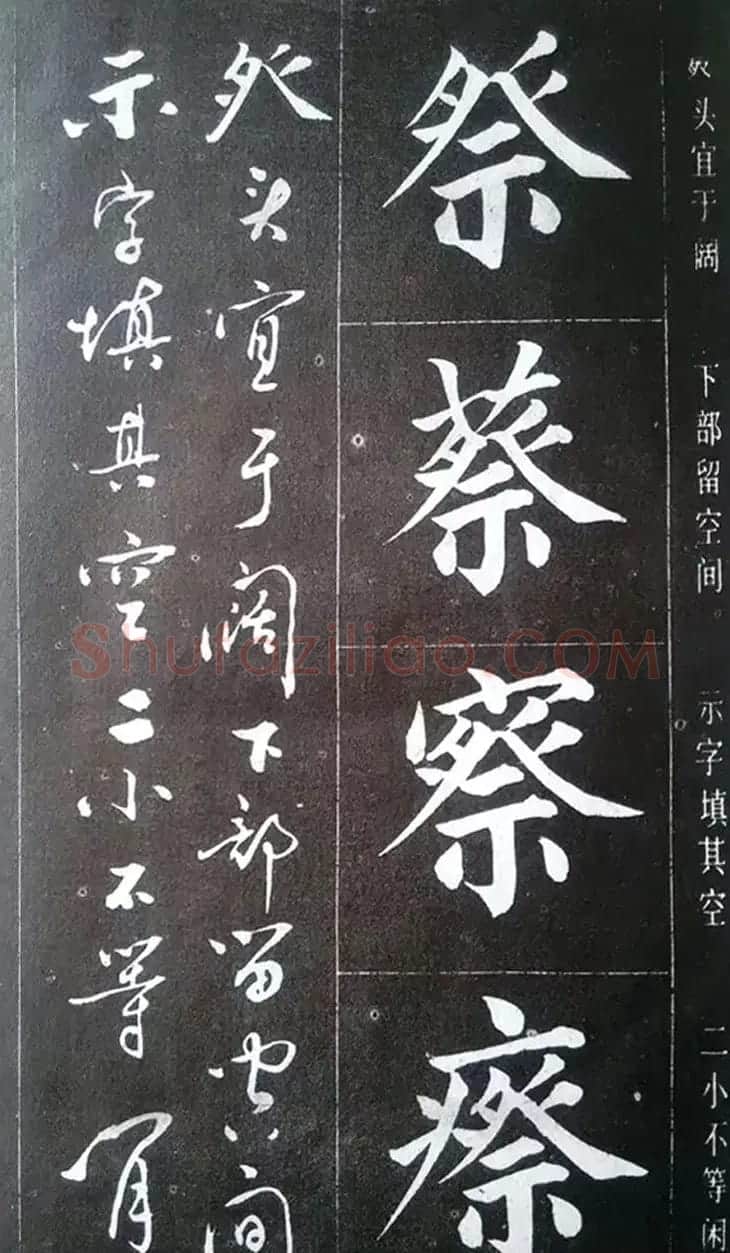 头宜于阔 下部留空间 示字填其空 二小不等闲
祭
蔡
察
瘵
头宜于阔下部留空间
示字填其空二小不等闲
Shufaziliao.COM